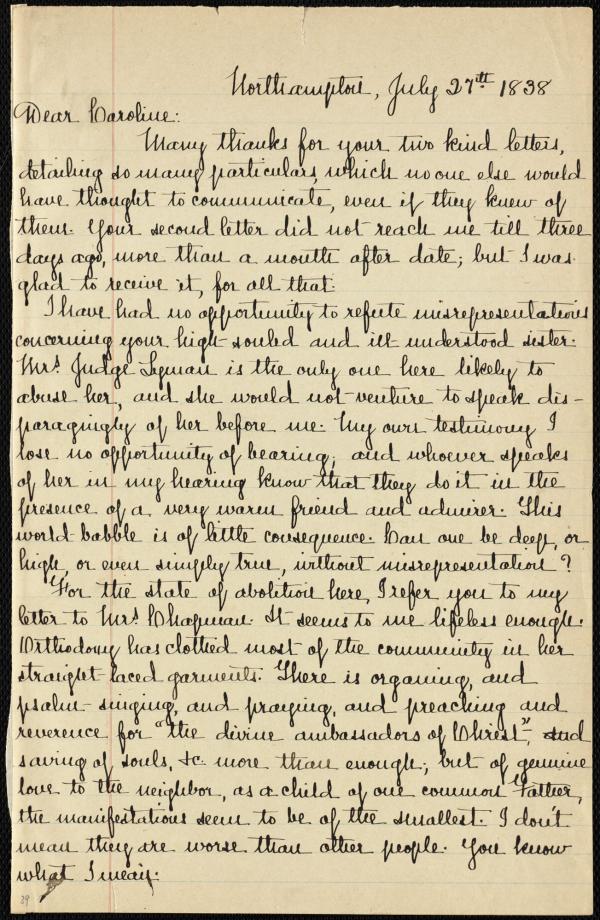 Northampton, July 27th 1838
Dear Caroline:
Many thanks for your two kind letters,
detailing so many particulars, which no one else would
have thought to communicate, even if they knew of
them. Your second letter did not reach me till three
days ago, more than a month after date; but I was
glad to receive it, for all that.
I have had no opportunity to refute misrepresentations
concerning your high-souled and ill-understood sister.
Mrs. Judge Lyman is the only one here likely to
abuse her, and she would not venture to speak dis-
paragingly of her before me. My own testimony I
lose no opportunity of bearing; and whoever speaks
of her in my hearing know that they do it in the
presence of a very warm friend and admirer. This
world-babble is of little consequence. Can one be deep, or
high, or even simply true, without misrepresentation?
For the state of abolition here, I refer you to my
letter to Mrs. Chapman. It seems to me lifeless enough.
Orthodoxy has clothed most of the community in her
straight-laced garments. There is organing, and
psalm-singing, and praying, and preaching and
reverence for "the divine ambassadors of Christ", and
saving of souls, &c. more than enough; but of genuine
love to the neighbor, as a child of one common Father,
the manifestations seem to be of the smallest. I don't
mean they are worse than other people. You know
what I mean.
29